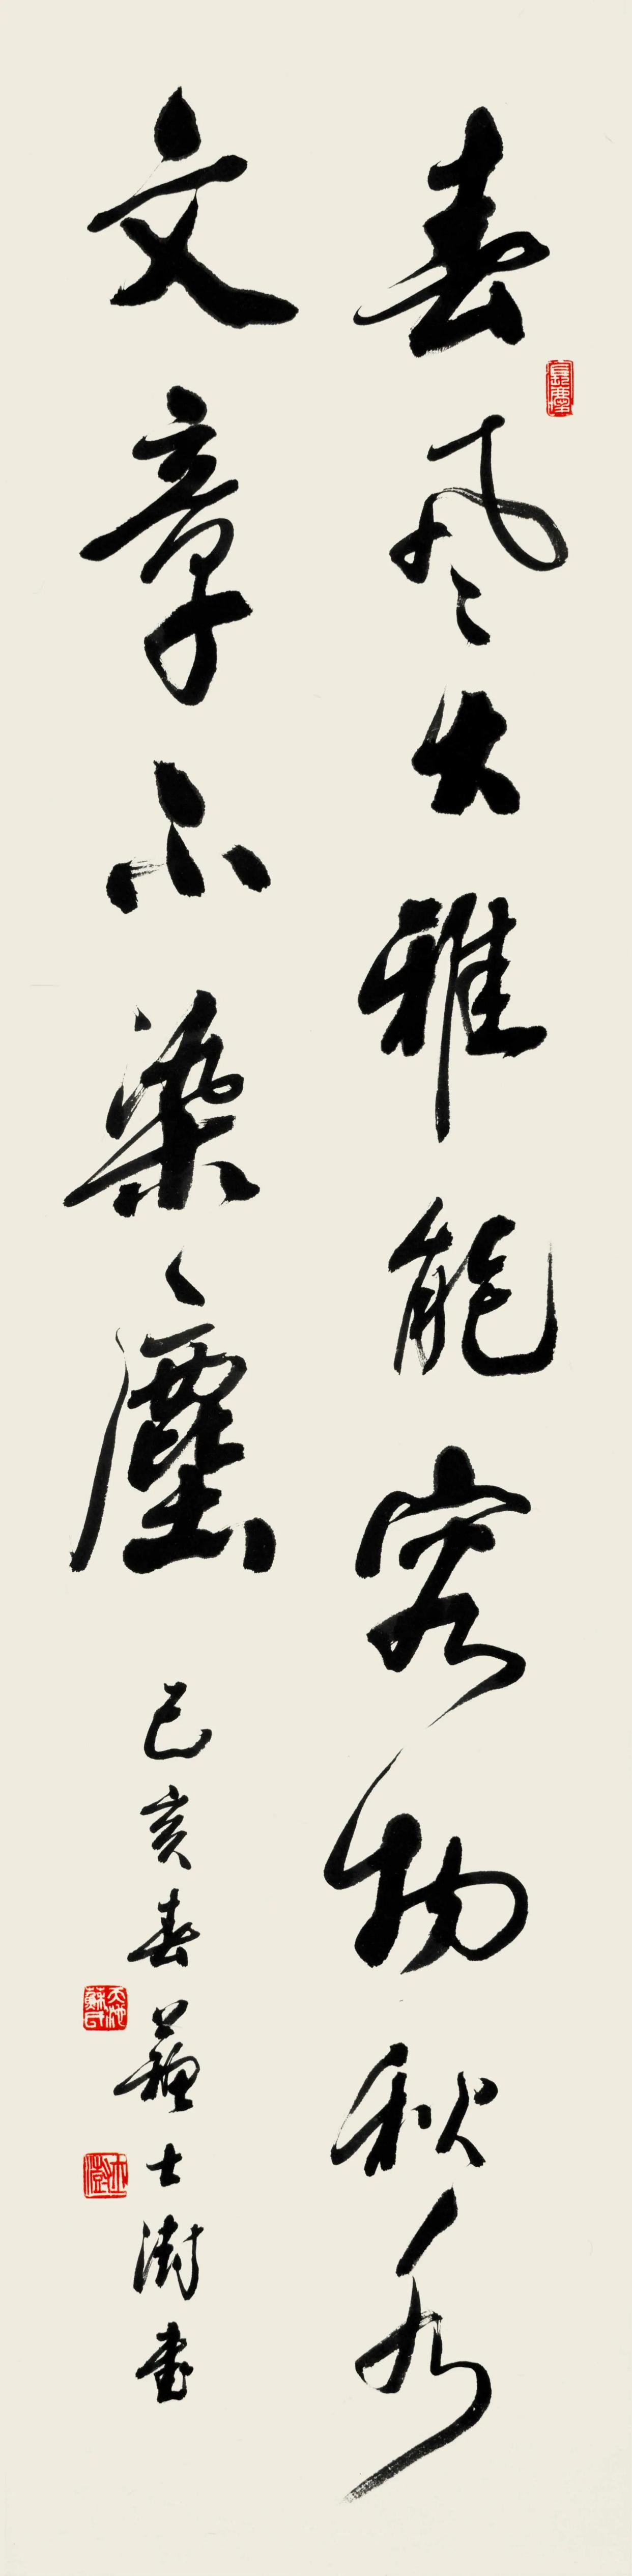 春风大雅能容物秋水
文章不染塵
己亥春蘇士澍書